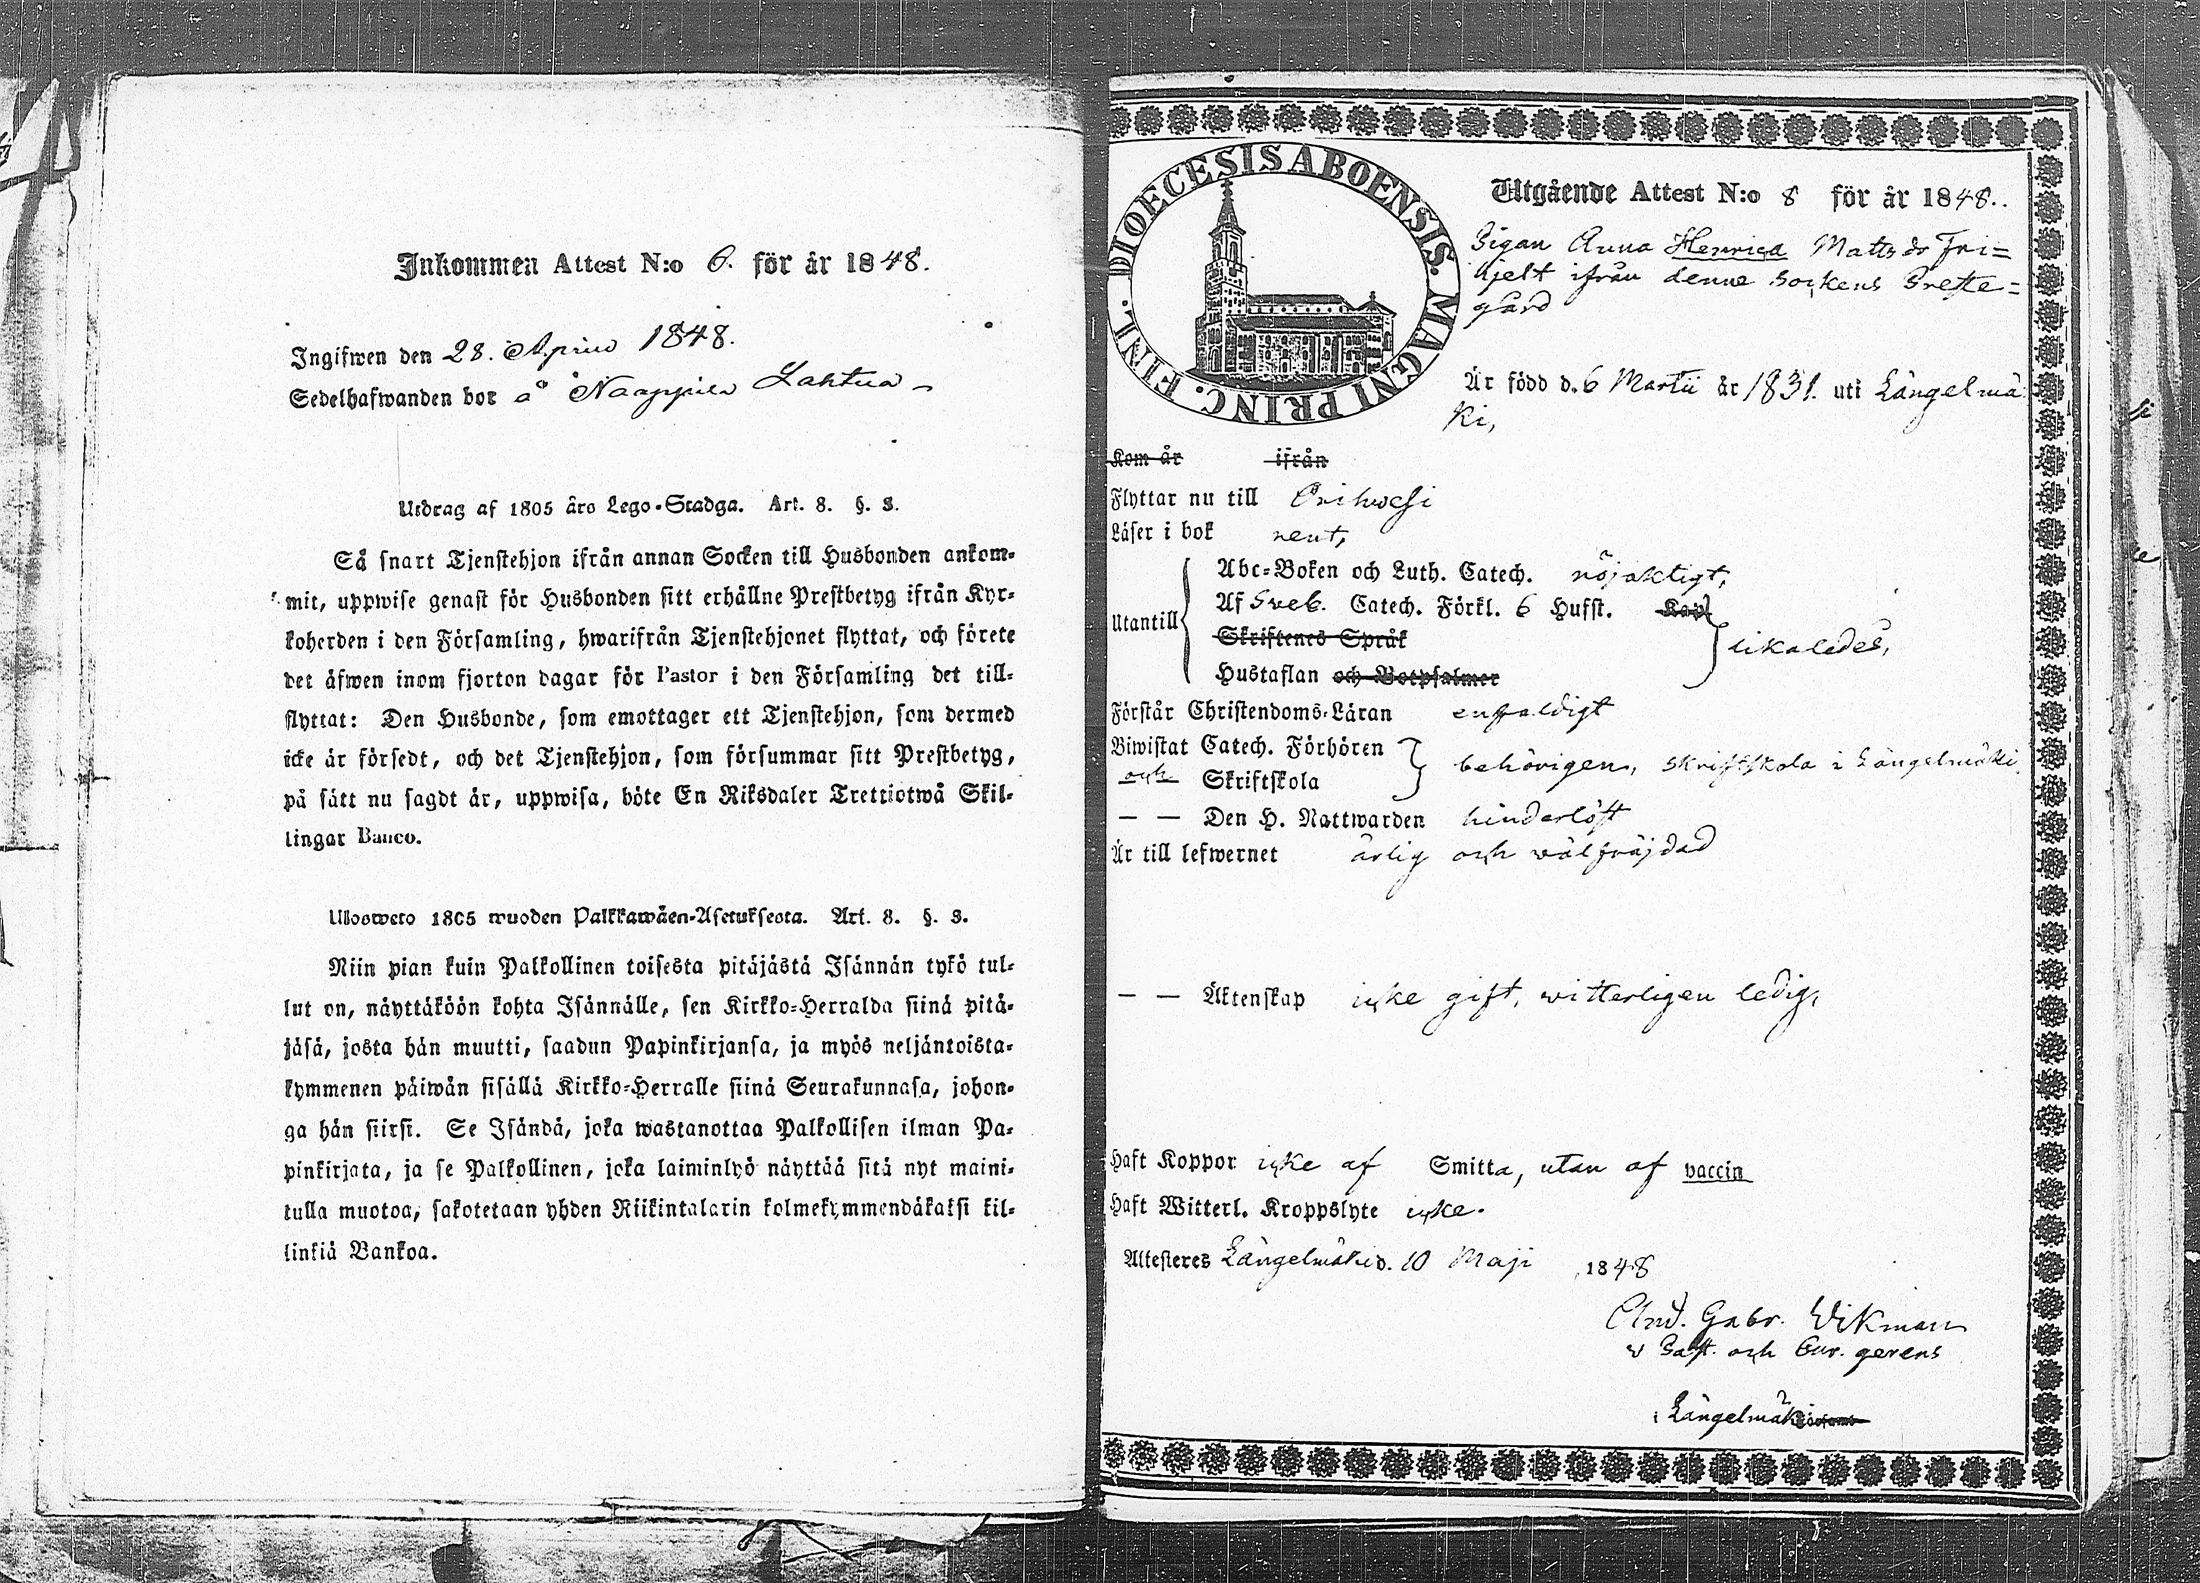 Inkommen Attest N:o 6. för år 1848.
Ingifwen den 28. April 1848.
Sedelhafwanden bor å Naappila Lahtua
Utdrag af 1805 åra Lego-Stadga. Art. 8. §. 3.
Så snart Tjenstehjon ifrån annan Socken till Husbonden ankom-
mit, uppwise genast för Husbonden sitt erhållne Prestbetyg ifrån Kyr-
koherden i den Församling, hwarifrån Tjenstehjonet flyttat, och förete
det äfwen inom fjorton dagar för Pastor i den Församling det till-
flyttat: Den Husbonde, som emottager ett Tjenstehjon, som dermed
icke är försedt, och det Tjenstehjon, som försummar sitt Prestbetyg,
på sätt nu sagdt är, uppwisa, böte En Riksdaler Trettiotwå Skil-
lingar Banco.
Ulosweto 1805 wuoden Palkkawäen-Asetuksesta. Art. 8. §. 3.
Niin pian kuin Palkollinen toisesta pitäjästä Isännän tykö tul-
lut on, näyttäköön kohta Isännälle, sen Kirkko-Herralda siinä pitä-
jäsä, josta hän muutti, saadun Papinkirjansa, ja myös neljäntoista-
kymmenen päiwän sisällä Kirkko-Herralle siinä Seurakunnasa, johon-
ga hän siirsi. Se Isändä, joka wastanottaa Palkollisen ilman Pa-
pinkirjata, ja se Palkollinen, joka laiminlyö näyttää sitä nyt maini-
tulla muotoa, sakotetaan yhden Riikintalarin kolmekymmendäkaksi kil-
linkiä Bankoa.
DIOECESIS ABOENSIS. MAGNI PRINC. FINL.
Utgående Attest N:o 8 för år 1848.
Pigan Anna Henrica Mattsdr Fri=
hjelt ifrån denne sockens Preste=
gård
Är född d. 6 Martii år 1831. uti Längelmä
ki,
Kom år ifrån
Flyttar nu till Orihwesi
Läser i bok rent,
Utantill
Abc-Boken och Luth. Catech. nöjaktigt,
Af Sweb. Catech. Förkl. 6 Hufst. Kap
Skriftenes Språk
likaledes,
Hustaflan och Botpsalmer
Förstår Christendoms-Läran enfaldigt
Biwistat Catech. Förhören
och Skriftskola
behörigen, skriftskola i Längelmäki
— — Den H. Nattwarden hinderlöst
Är till lefwernet ärlig och wälfräjdad
— — Äktenskap icke gift, witterligen ledig,
Haft Koppor icke af Smitta, utan af vaccin
Haft Witterl. Kroppslyte icke.
Attesteres Längelmäki d. 10 Maji 1848
And. Gabr. Wikman
v Past. och Cur. gerens
i Längelmäki